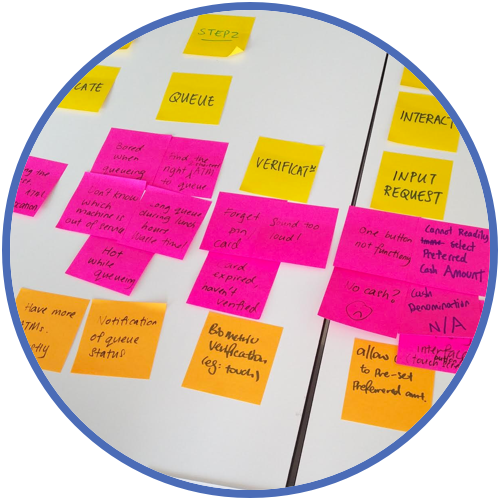 STEP 2
CATE
QUEUE
INTERACT
VERIFICAT
INPUT
REQUEST
Bored
when
queueing
Find the
right
ATM
to queue
Don't know
which
machine is
out of service
Long queue
during lunch
hours
Hot
while
queueing
Forget
pin
card
Sound too
loud!
card
expired,
haven't
verified
One button
not functiong
Cannot Readily
Select
Preferred
Cash Amount
No cash?
Cash
Denomination
N/A
interface
Have more
ATMs.
Notification
of queue
status
Biometric
Verification
(eg: touch)
allow
to Pre-set
Preferred amt.